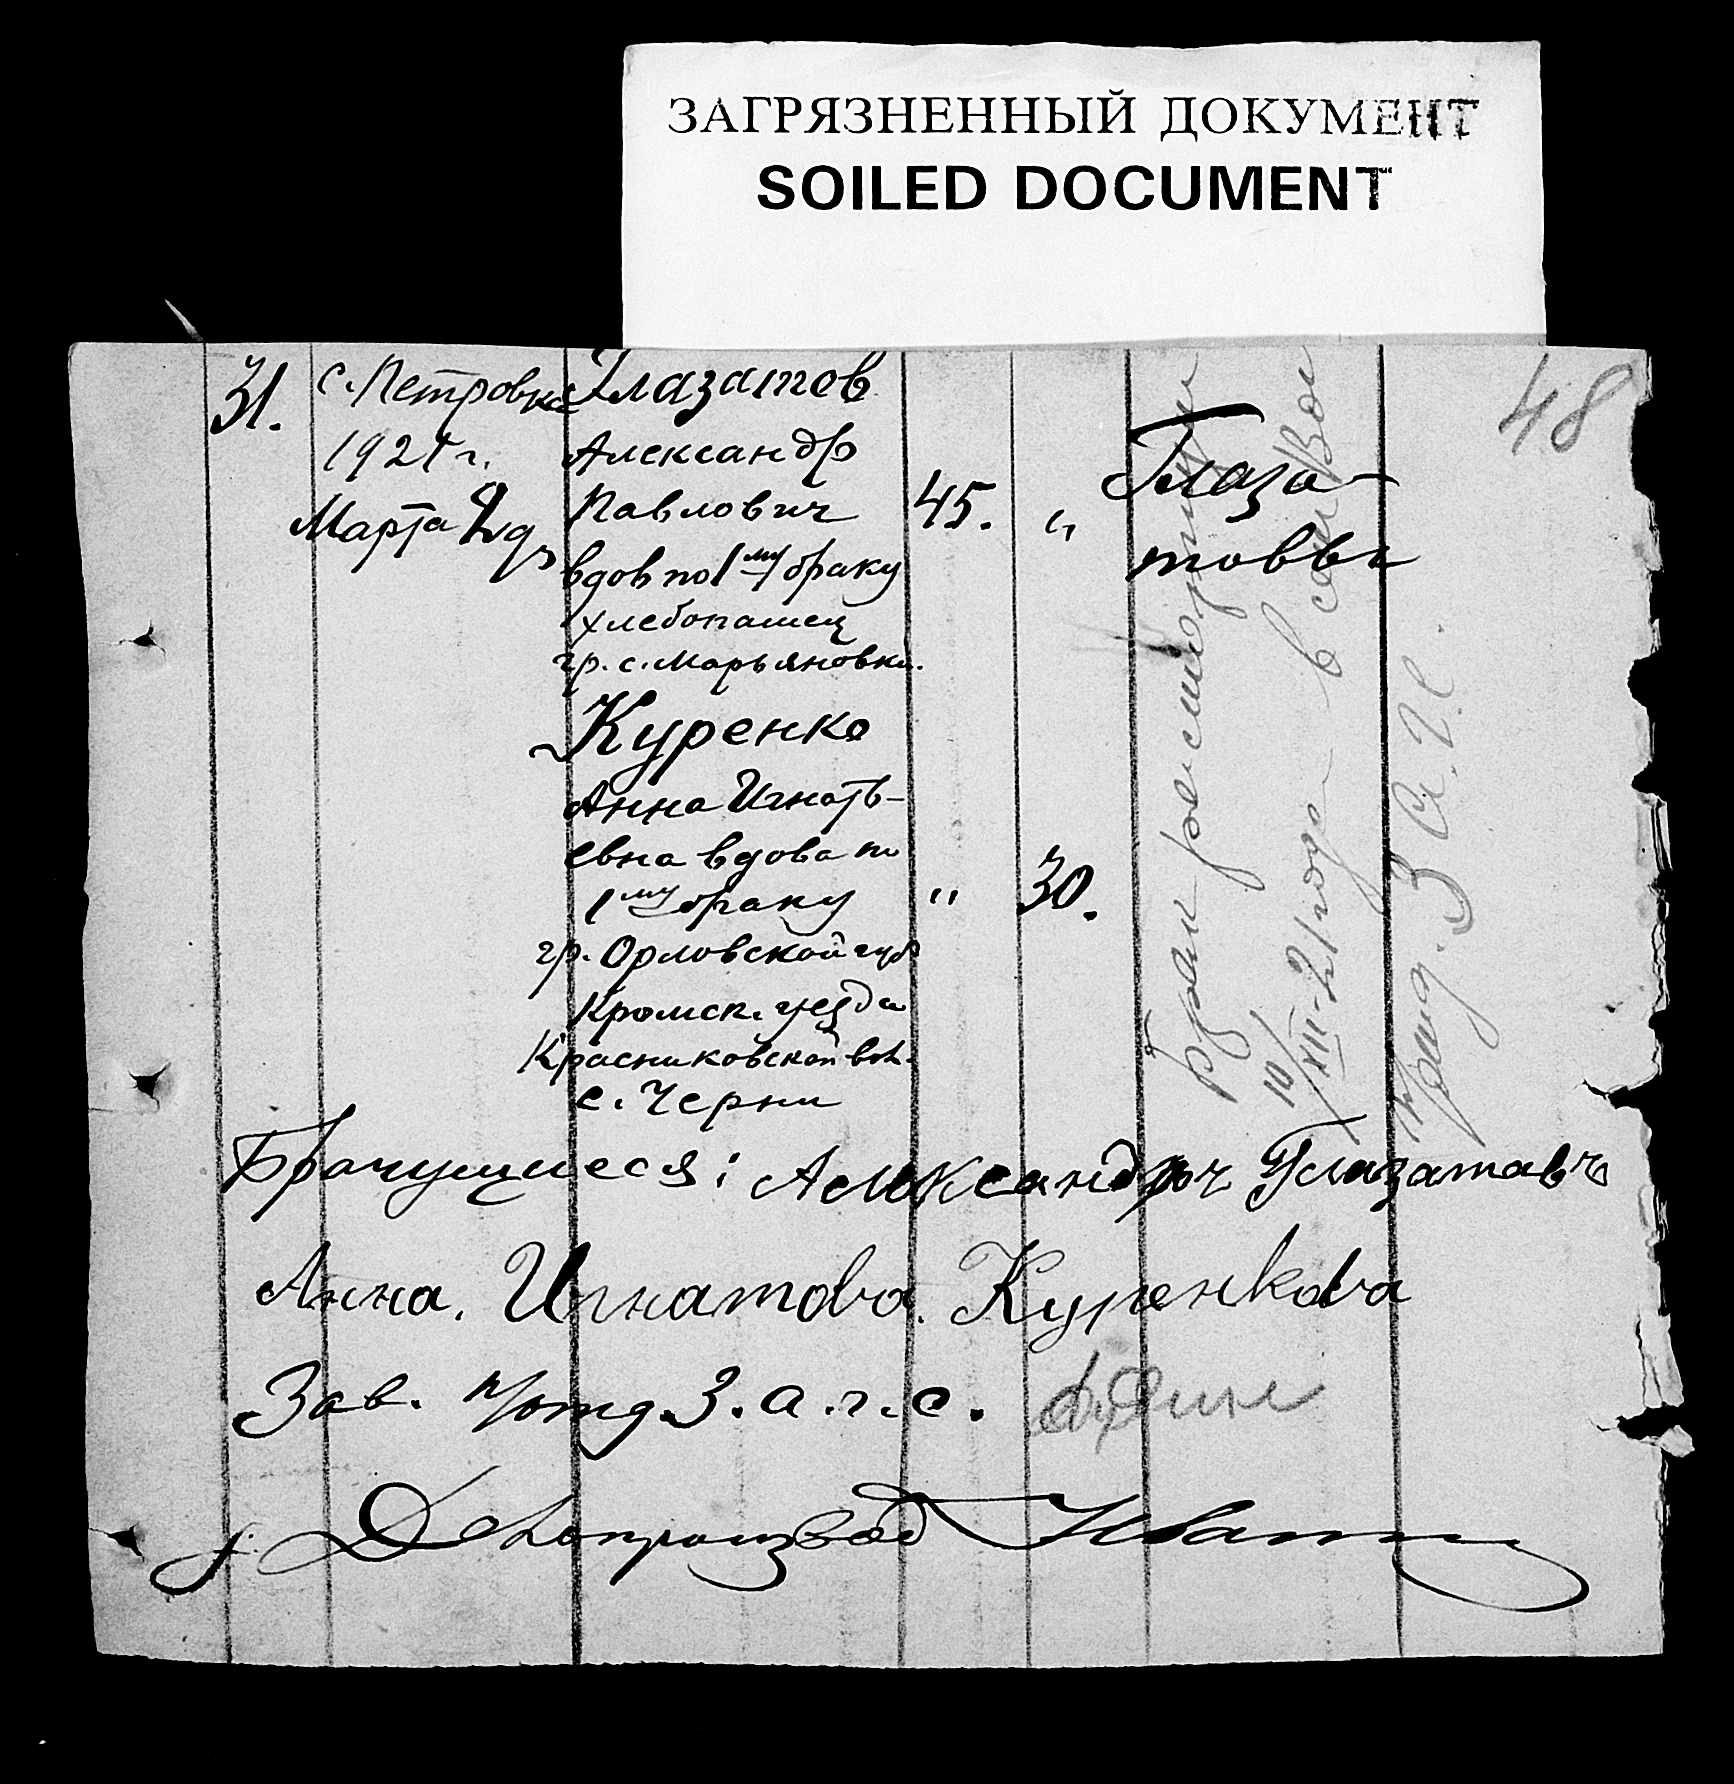 ЗАГРЯЗНЕННЫЙ ДОКУМЕНТ
SOILED DOCUMENT
48
31.
с. Петровка
1921 г.
Марта 2 д.
Глазатов
Александр
Павлович
вдов по 1му браку
хлебопашец
гр. с. Марьяновки.
45. "
Глаза-
товы
Куренко
Анна Игнать-
евна вдова по
1му браку
гр. Орловской губ
Кромск. уезда
Красниковской вол.
с. Черни
" 30.
Брак расторгнут
10/XII-21 года в
З А. Г. С.
Брачущиеся: Александр Глазатовъ
Анна. Игнатова. Куренкова
Зав. п/отд. З. а. г. с.
Делопроизвод